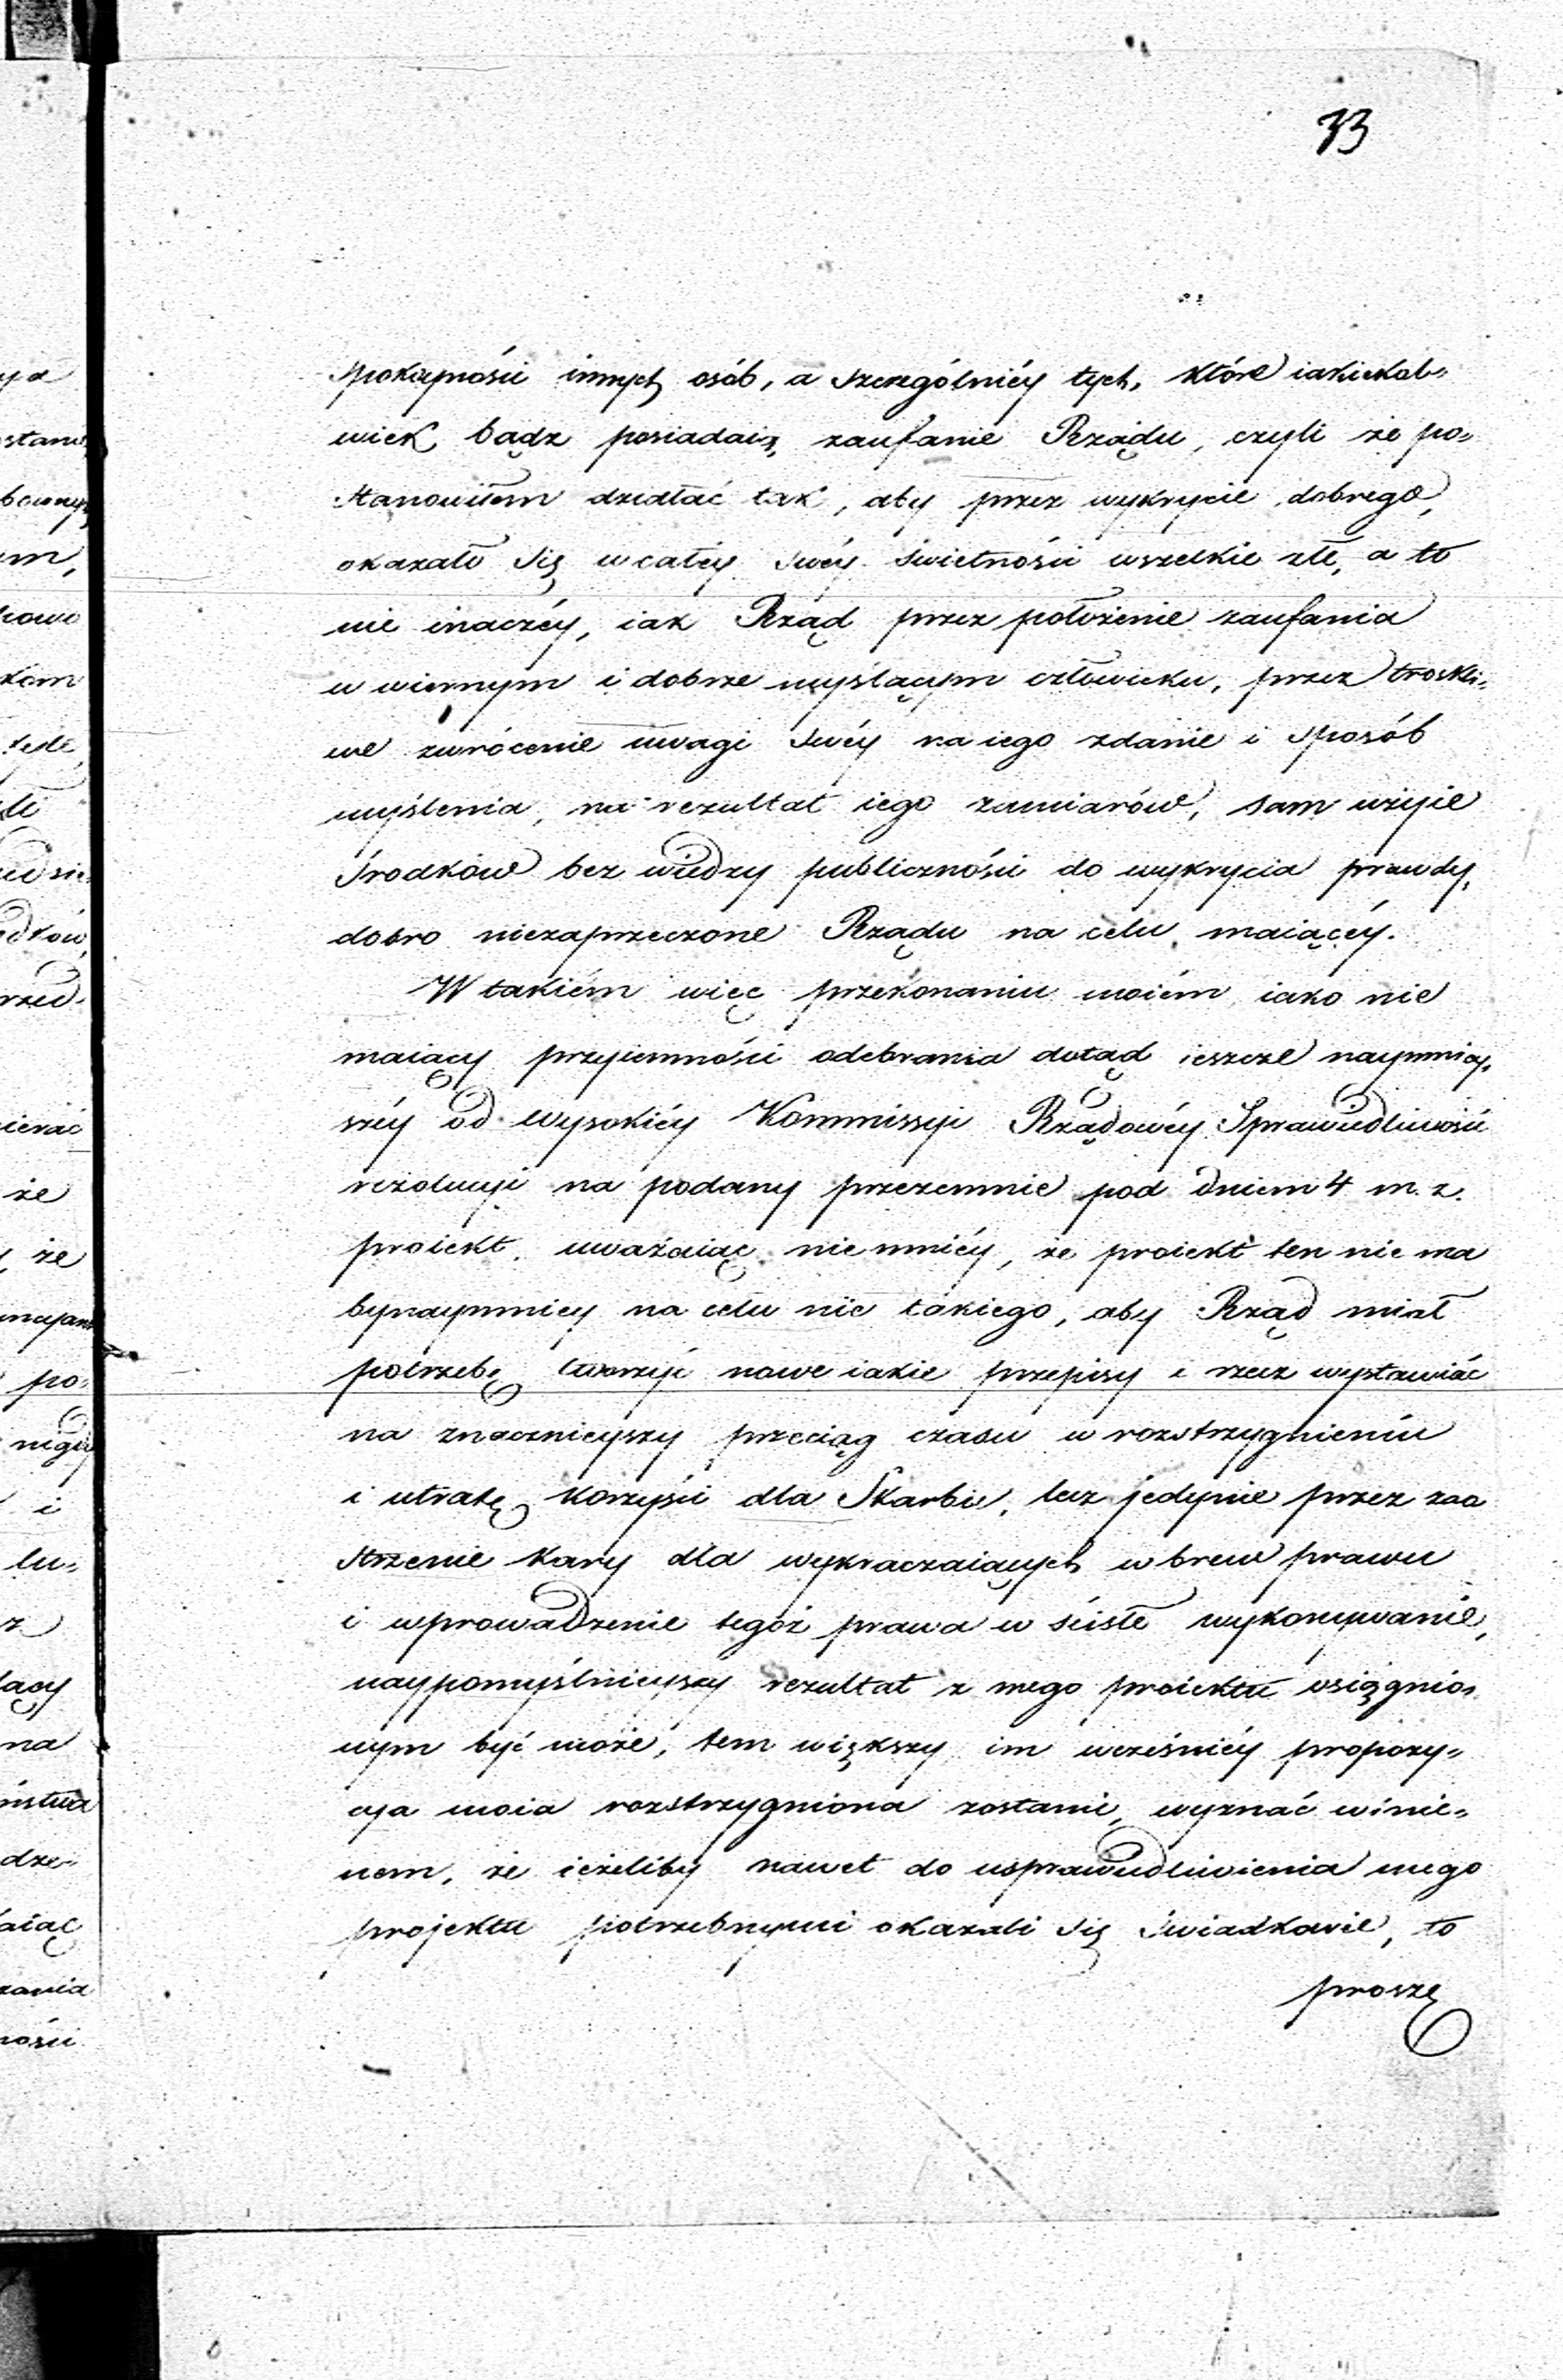 33
spokoyności innych osób, a szczególniéy tych, które iakiekol=
wiek bądz posiadaią zaufanie Rządu, czyli że po=
stanowiłem działać tak, aby przez wykrycie dobrego,
okazało się w całéy swéy świetności wszelkie złe, a to
nie inaczéy, iak Rząd przez położenie zaufania
w wiernym i dobrze myślącym człowieku, przez troskli=
we zwrócenie uwagi swéy na iego zdanie i sposób
myślenia, na rezultat iego zamiarów, sam użyie
środków bez wiedzy publiczności do wykrycia prawdy,
dobro niezaprzeczone Rządu na celu maiącéy.
W takiém więc przekonaniu moiém iako nie
maiący przyiemności odebrania dotąd ieszcze naymniey=
széy od Wysokiéy Kommissyi Rządowéy Sprawiedliwości
rezolucyi na podany przezemnie pod dniem 4 m. z.
proiekt, uważaiąc niemniéy, że proiekt ten nie ma
bynaymniey na celu nic takiego, aby Rząd miał
potrzebę tworzyć nowe iakie przepisy i rzecz wystawiać
na znacznieyszy przeciąg czasu w rozstrzygnieniu
i utratę korzyści dla Skarbu, lecz jedynie przez zao
strzenie kary dla wykraczaiących wbrew prawu
i wprowadzenie tegoż prawa w ścisłe wykonywanie,
naypomyślnieyszy rezultat z mego proiektu osiągnio=
nym być może, tem większy im wcześniéy propozy=
cya moia rozstrzygniona zostanie, wyznać winie=
nem, że ieżeliby nawet do usprawiedliwienia mego
projektu potrzebnymi okazali się świadkowie, to
proszę